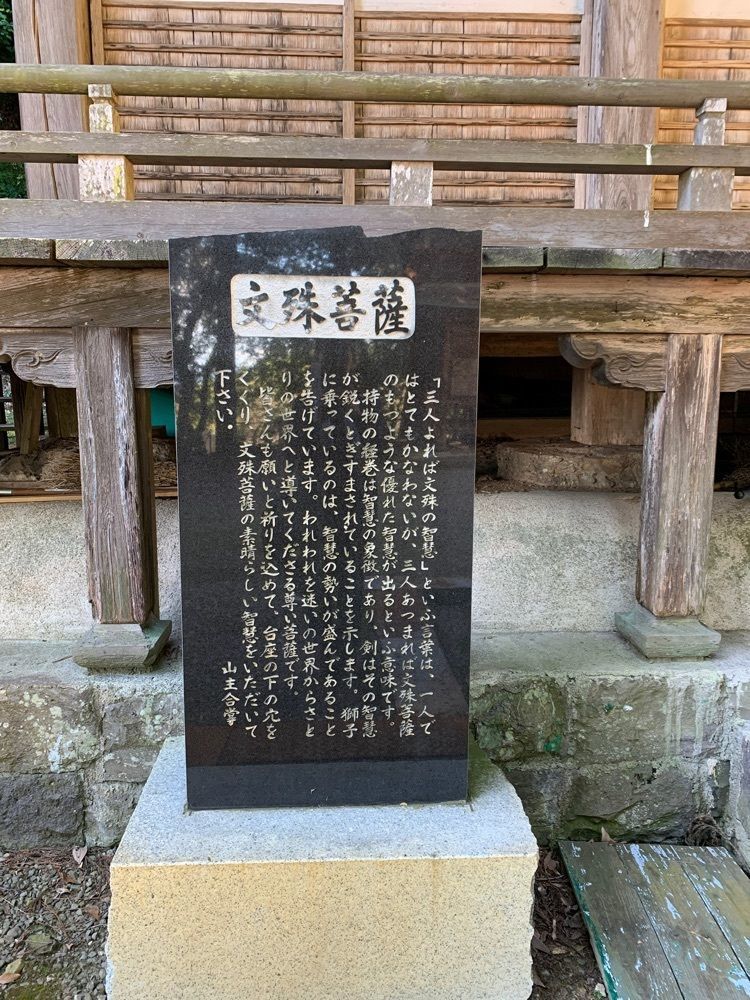 文殊菩薩
「三人よれば文殊の智慧」といふ言葉は、一人で
はとてもかなわないが、三人あつまれば文殊菩薩
のもつような優れた智慧が出るといふ意味です。
持物の経巻は智慧の象徴であり、剣はその智慧
が鋭くとぎすまされていることを示します。獅子
に乗っているのは、智慧の勢いが盛んであること
を告げています。われわれを迷いの世界からさと
りの世界へと導いてくださる尊い菩薩です。
皆さんも願いと祈りを込めて、台座の下の穴を
くぐり 文殊菩薩の素晴らしい智慧をいただいて
下さい。
山主合掌